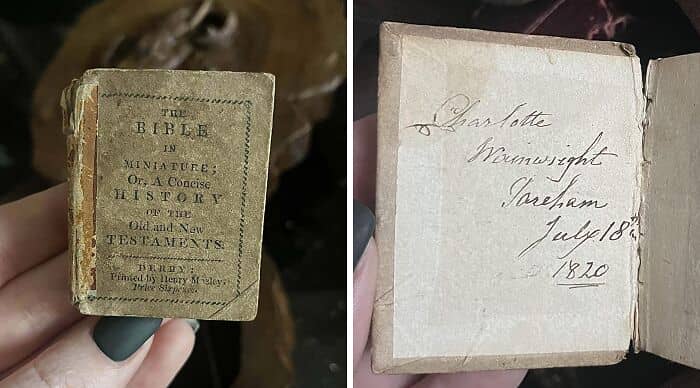 THE
BIBLE
IN
MINIATURE;
Or, A Concise
HISTORY
OF THE
Old and New
TESTAMENTS.
DERBY:
Printed by Henry Mozley,
Price Sixpence.
Charlotte
Wainwright
Foreham
July 18th
1820